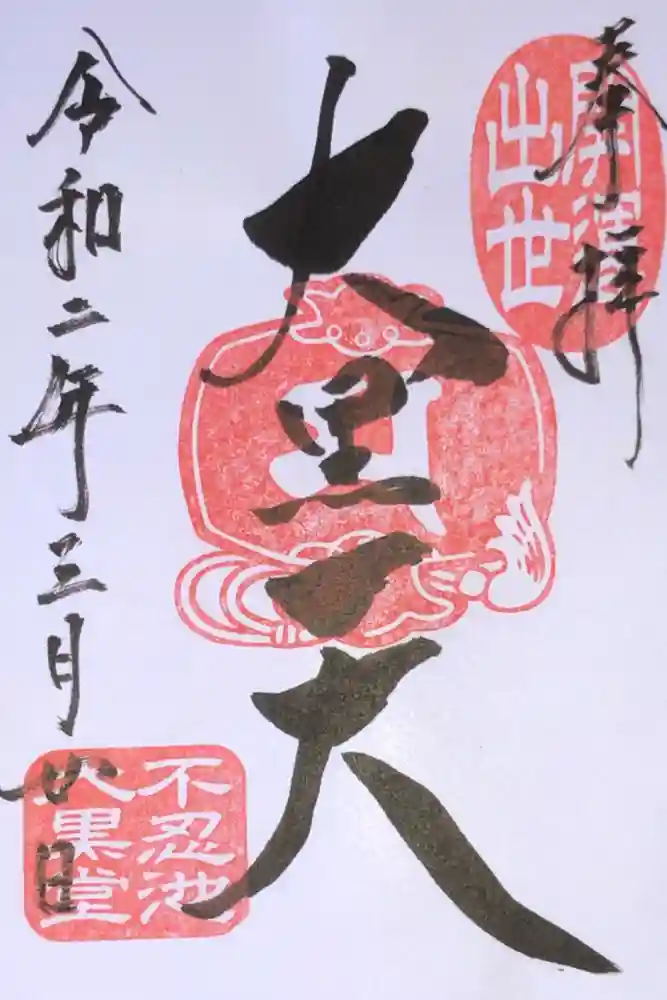 奉拝
開運
出世
大黒天
令和二年三月日
不忍池
大黒堂